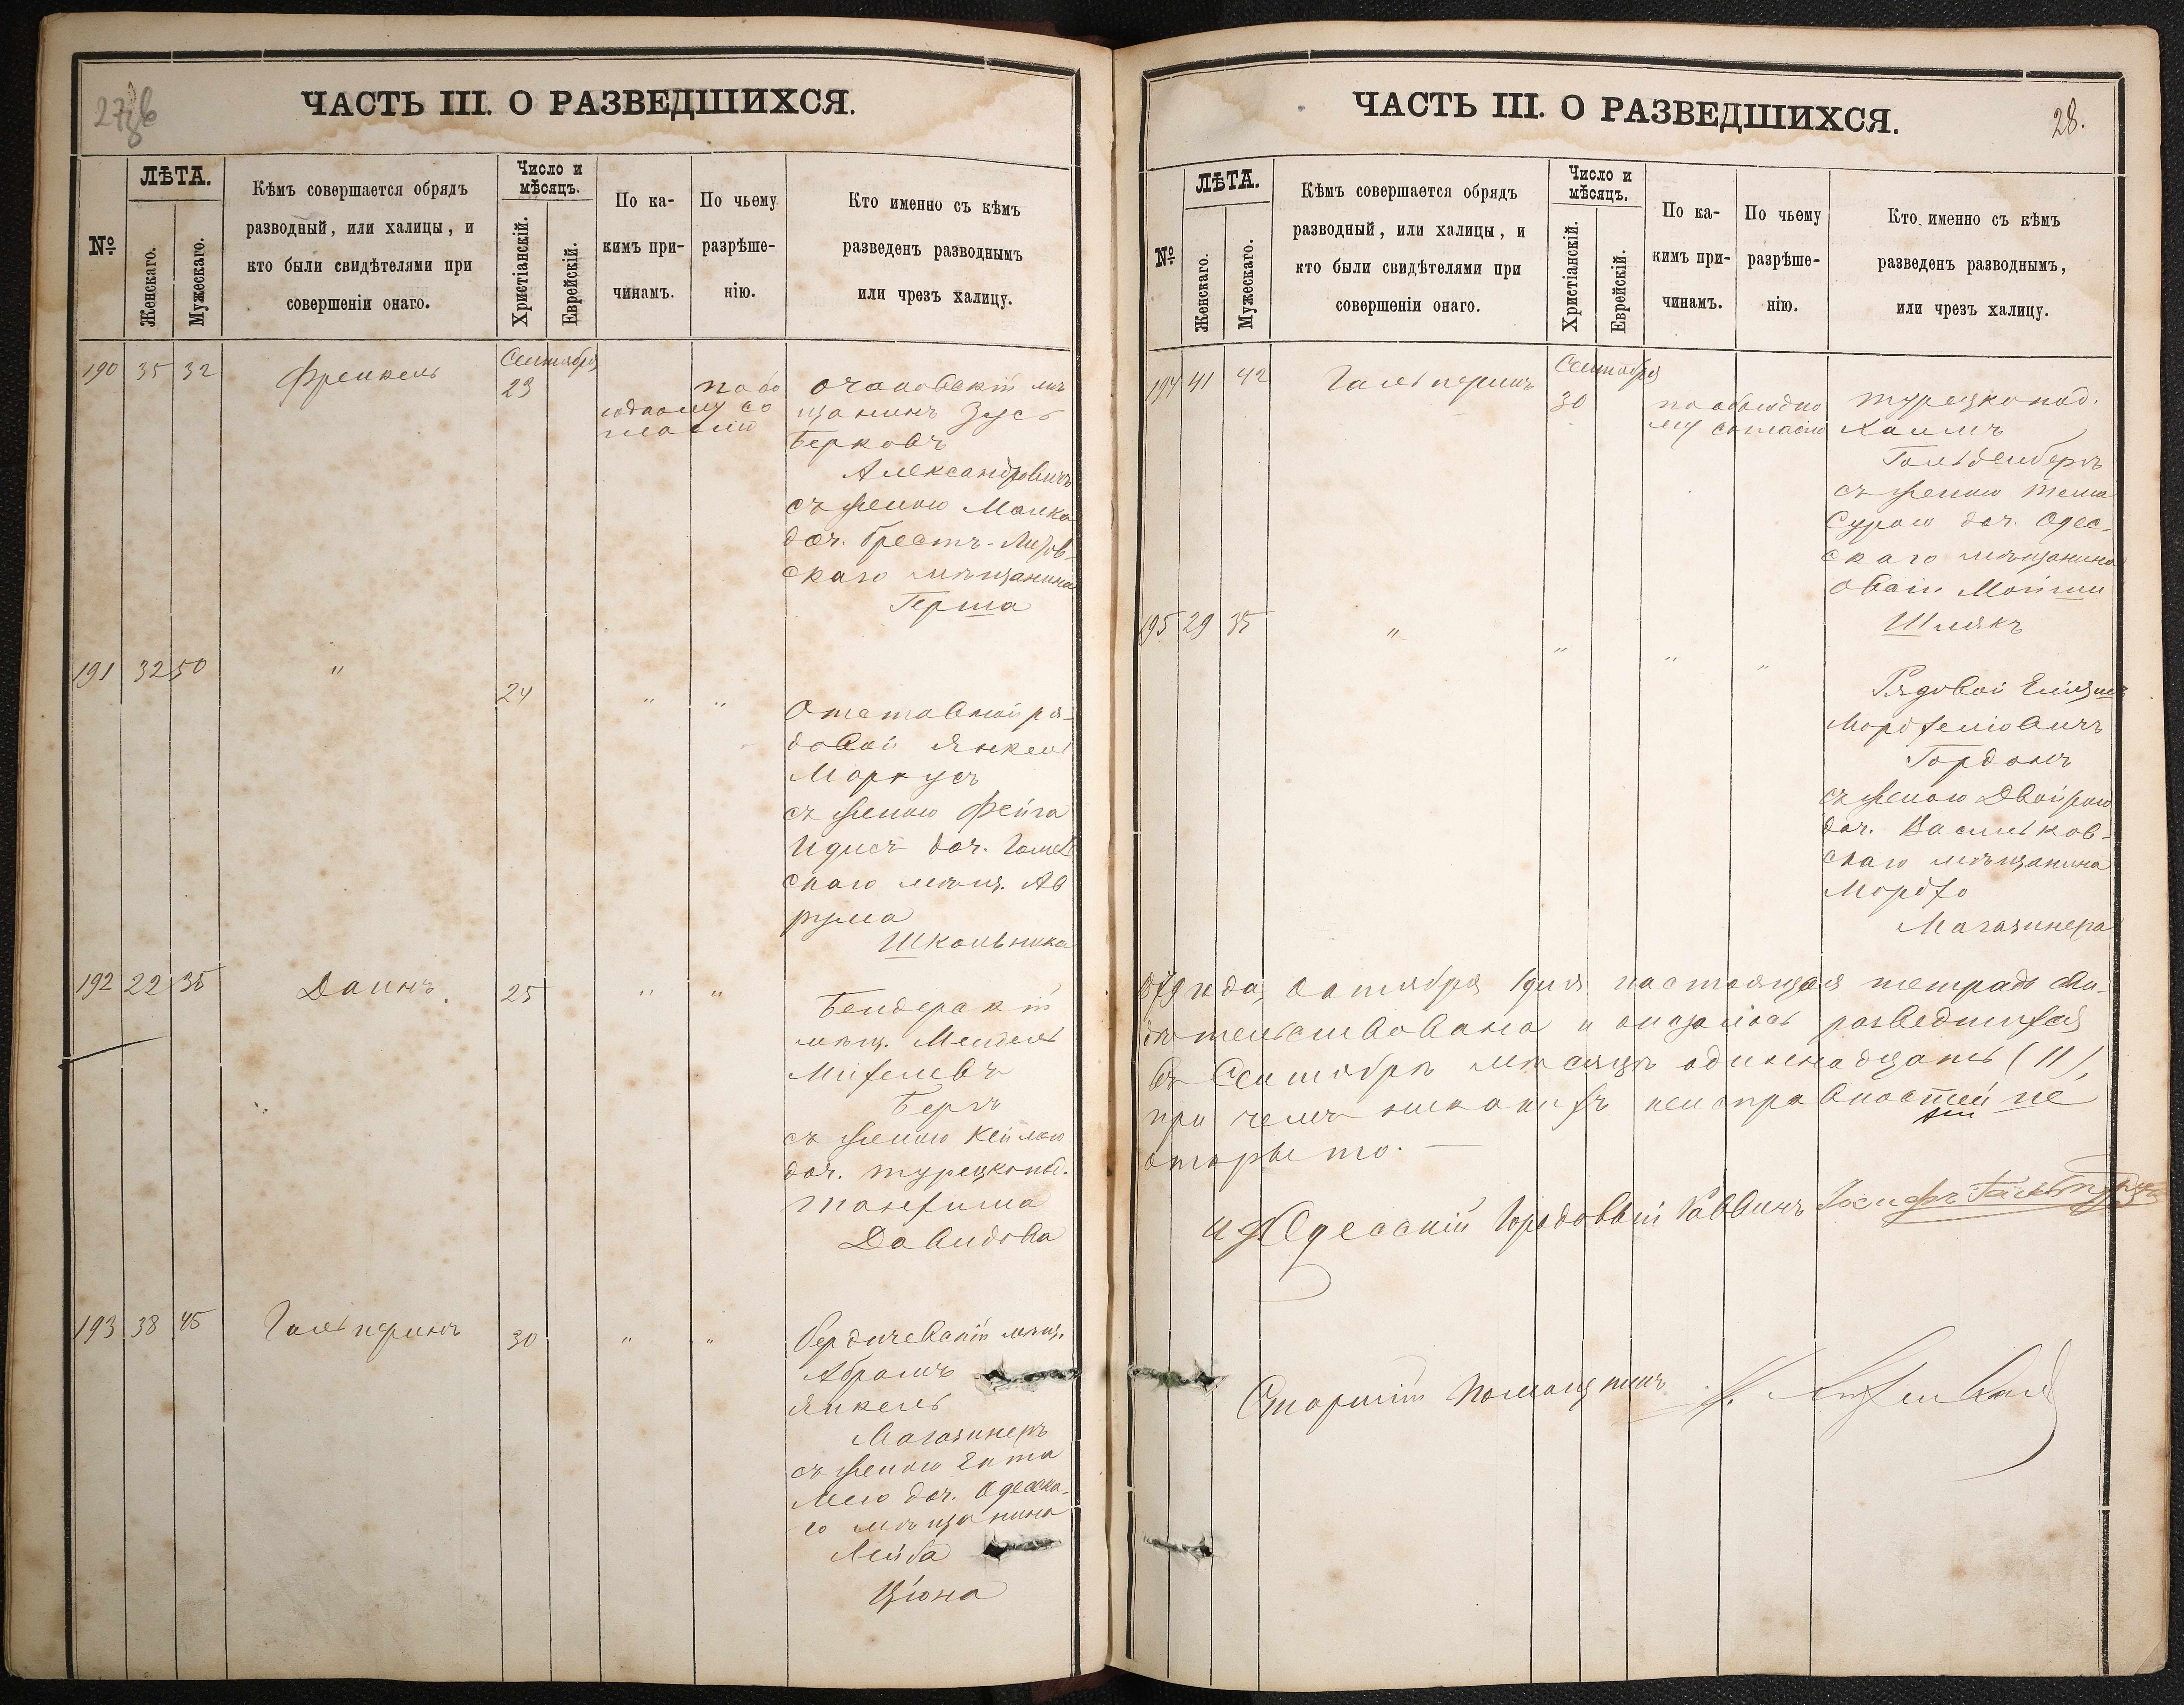 27 зв
ЧАСТЬ III. О РАЗВЕДШИХСЯ.
№
ЛѢТА.
Женскаго.
Мужескаго.
Кѣмъ совершается обрядъ
разводный, или халицы, и
кто были свидѣтелями при
совершеніи онаго.
Число и
мѣсяцъ.
Христіанскій.
Еврейскій.
По ка-
кимъ при-
чинамъ.
По чьему
разрѣше-
нію.
Кто именно съ кѣмъ
разведенъ разводнымъ
или чрезъ халицу.
190 35 32 Френкель Сентября
23
по обо
юдному со
гласію
Очаковскій мѣ
щанинъ Зусь
Берковъ
Александровичъ
съ женою Малка
доч. Брестъ-Литов-
скаго мѣщанина
Герша
191 32 50 " 24 " "
Отставной ря-
довой Янкель
Маркусъ
съ женою Фейга
Идись доч.
скаго мѣщ. Ав
рума
Школьника
192 22 35 Даинъ. 25 " "
Бендерскій
мѣщ. Мендель
Михелевъ
Бергъ
съ женою Кейлою
доч. турецкопод.
Танхима
Давидова
193 38 45 Гальперинъ 30 " "
Бердичевскій мѣщ.
Абрамъ
Янкель
Магазинеръ
съ женою Ента
Лею доч. Одесска-
го мѣщанина
Лейба
Ціона
ЧАСТЬ III. О РАЗВЕДШИХСЯ.
28.
№
ЛѢТА.
Женскаго.
Мужескаго.
Кѣмъ совершается обрядъ
разводный, или халицы, и
кто были свидѣтелями при
совершеніи онаго.
Число и
мѣсяцъ.
Христіанскій.
Еврейскій.
По ка-
кимъ при-
чинамъ.
По чьему
разрѣше-
нію.
Кто именно съ кѣмъ
разведенъ разводнымъ,
или чрезъ халицу.
194 41 42 Гальперинъ Сентября
30
по обоюдно
му согласію
турецкопод.
Хаимъ
Гольденбергъ
съ женою
Сурою доч. Одес-
скаго мѣщанина
Овсій Мойши
Шлякъ
195 29 35 " " " "
Рядовой
Мордхеліовичъ
Гордонъ
съ женою Двойрою
доч. Васильков-
скаго мѣщанина
Мордхо
Магазинера
Октября 1 дня настоящая тетрадь сви-
дѣтельствована и оказалось разведшихся
въ Сентябрѣ мѣсяцѣ одиннадцать (11),
при чемъ никакихъ неисправностей не
открыто. —
Одесскій Городовый Раввинъ
Старшій Помощникъ